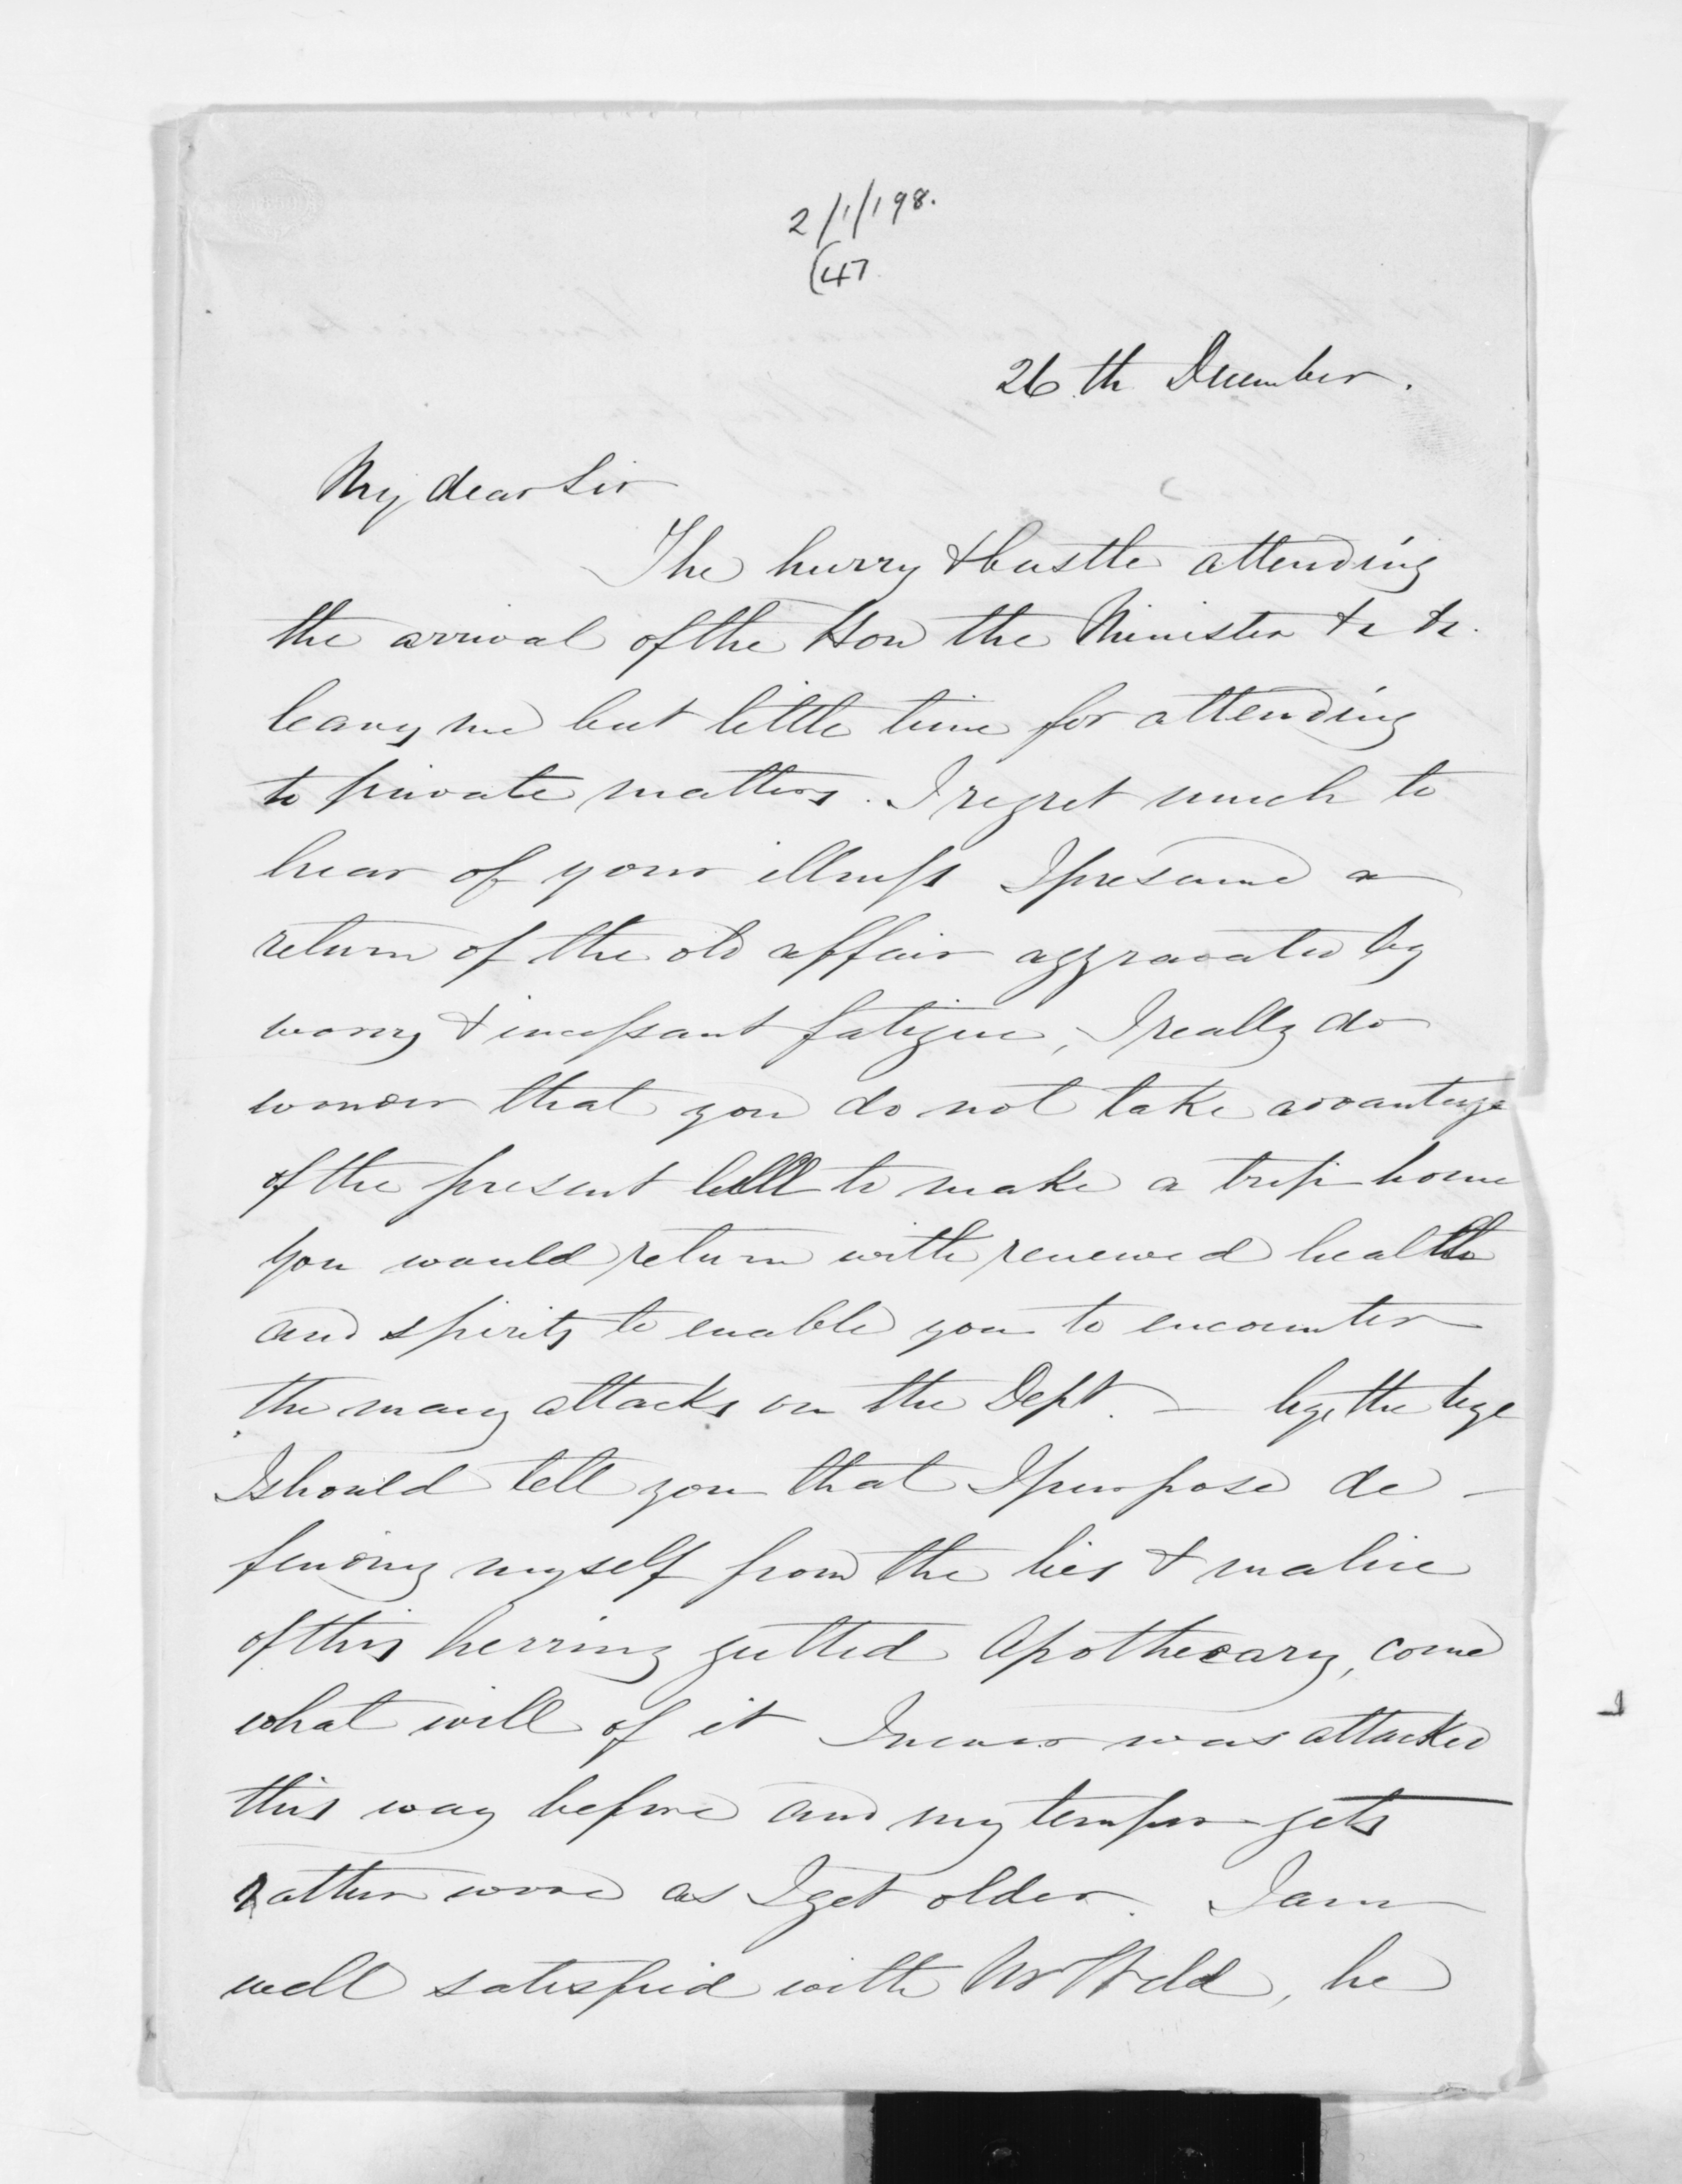 2/1/198.
(47
26th December.
My dear Sir
The hurry & bustle attending
the arrival of the Hon the Minister &c &c.
leavs me but little time for attending
to private matters. I regret much to
hear of your illness I presume a
return of the old affair aggravated by
worry & incessant fatigue, I really do
wonder that you do not take advantage
of the present lull to make a trip home
you would return with renewed health
and spirits to enable you to encounter
the many attacks on the Dept. — by the bye
I should tell you that I purpose de-
fending myself from the lies & malice
of this herring gutted Apothecary, come
what will of it I never was attacked
this way before and my temper gets
rather worse as I get older. I am
well satisfied with Mr, he